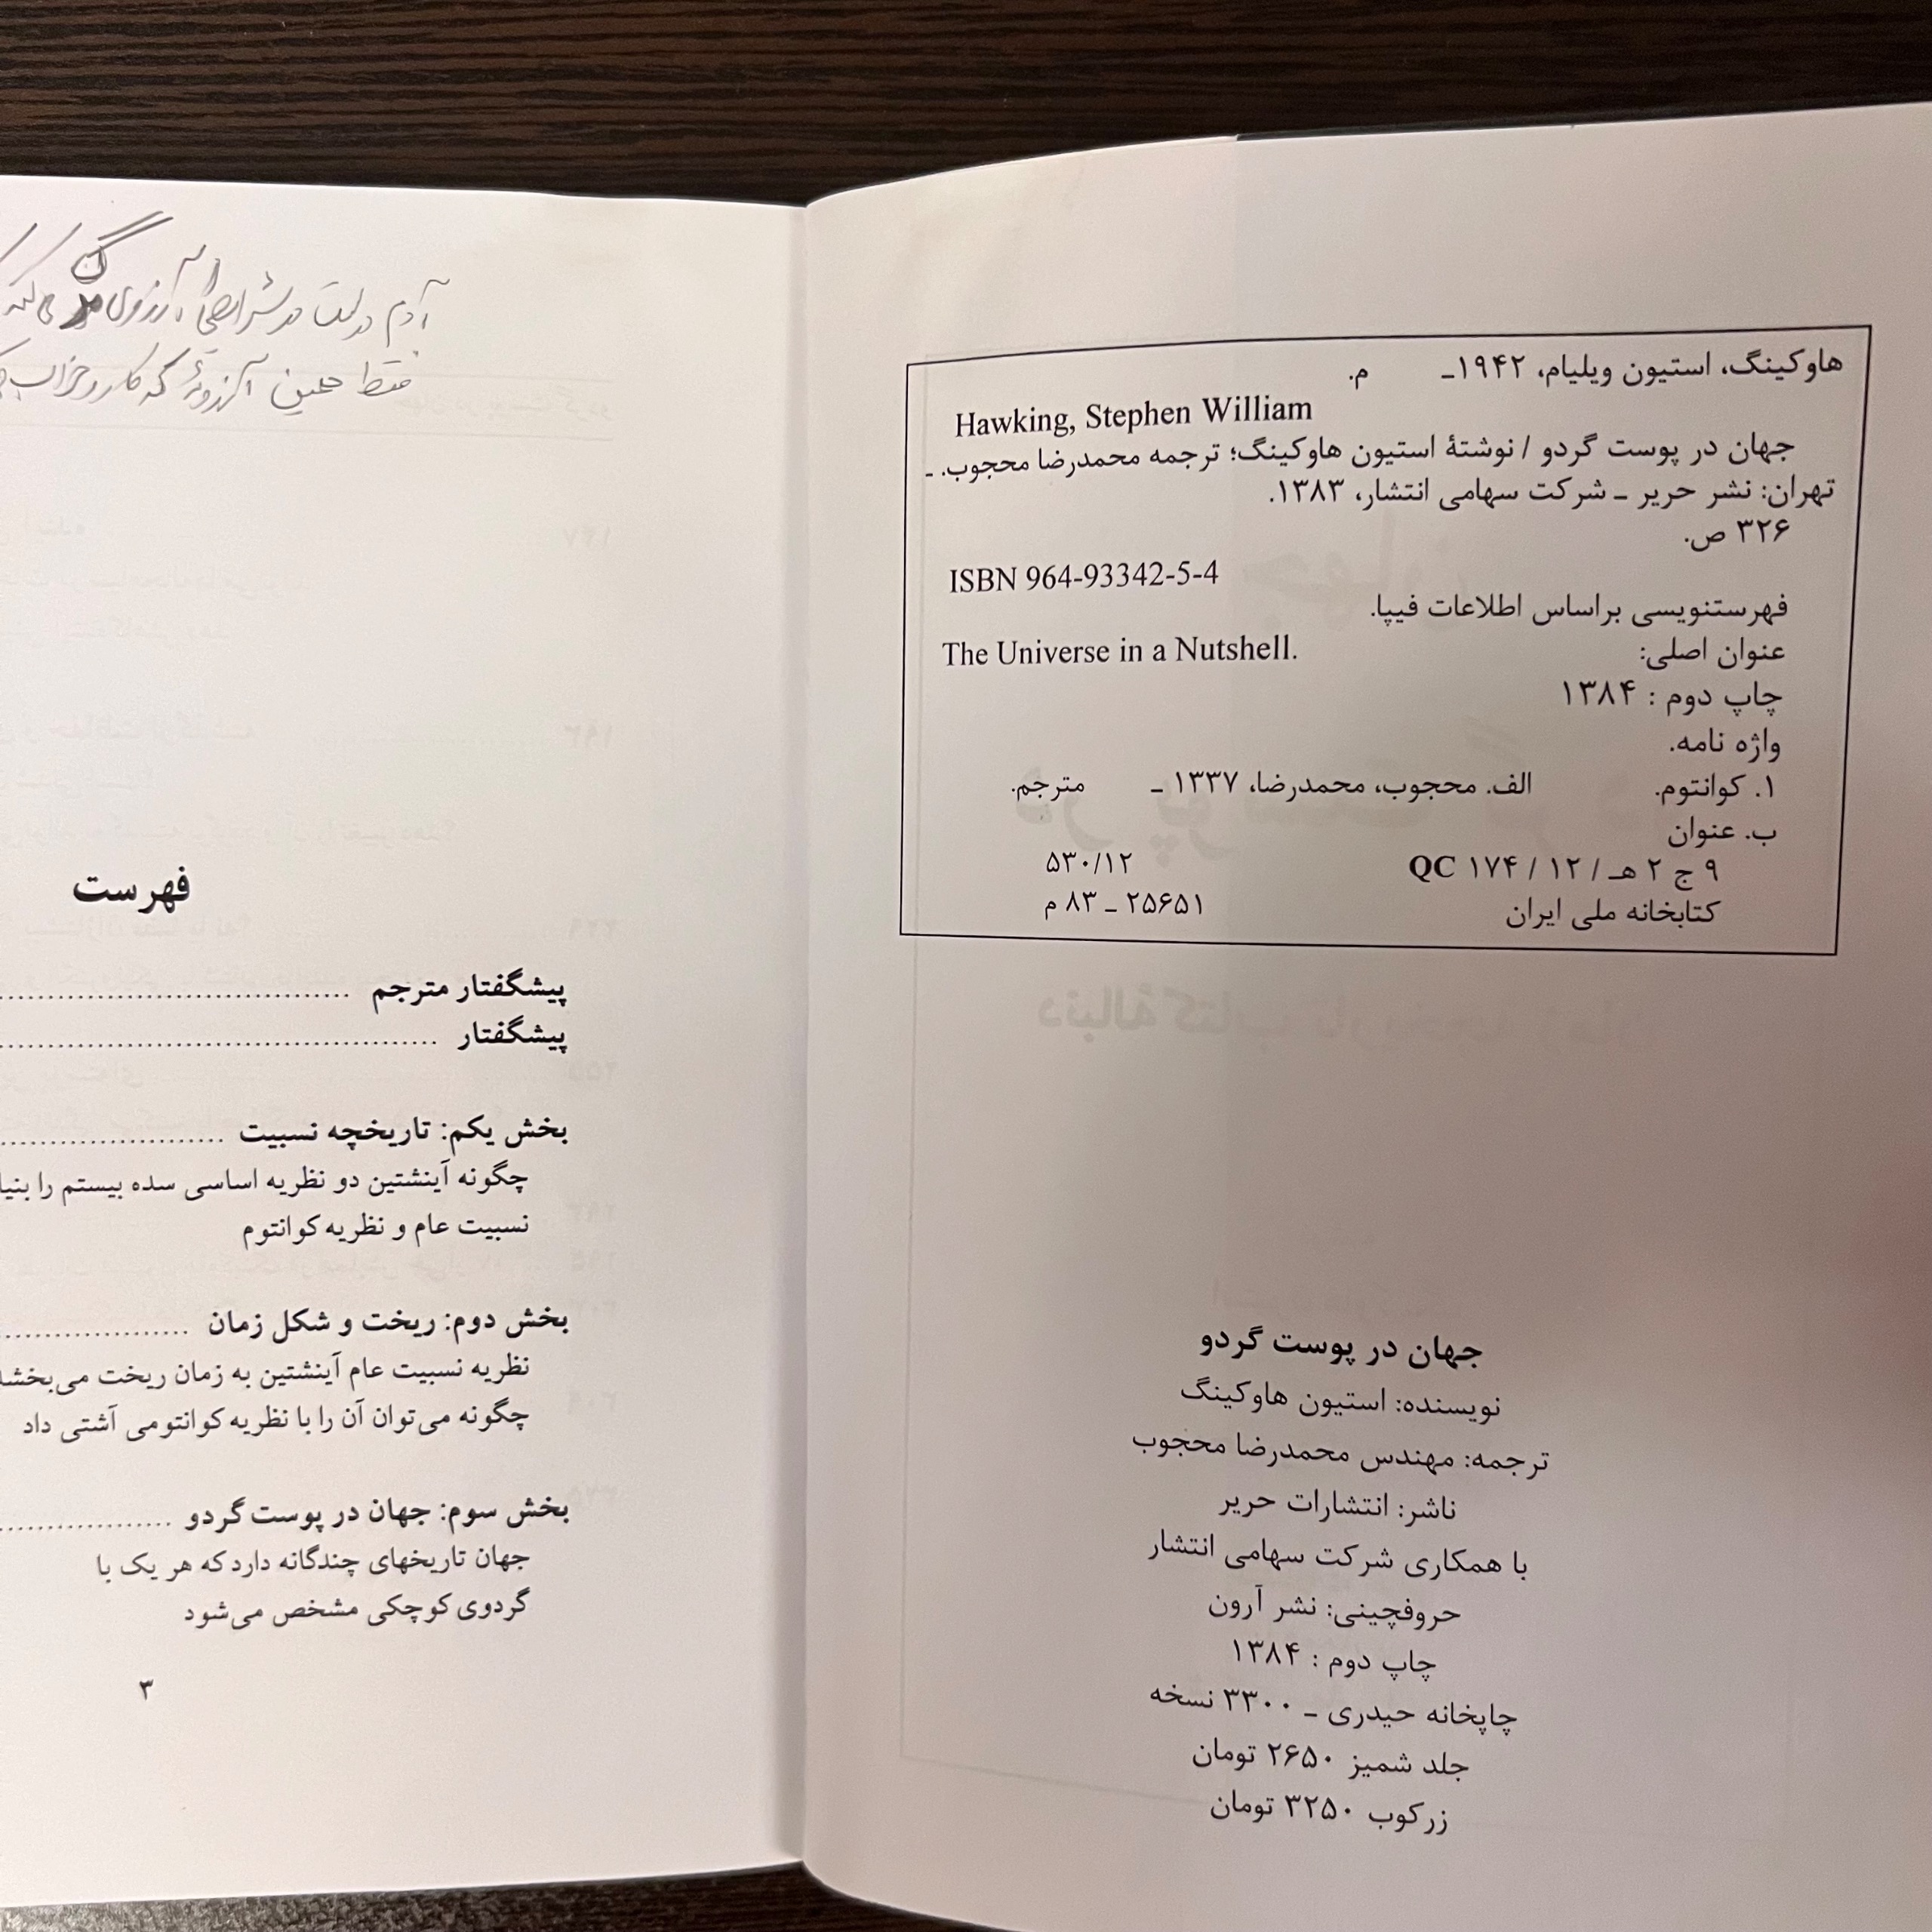 هاوکینگ، استیون ویلیام، ۱۹۴۲ـ م.
Hawking, Stephen William
جهان در پوست گردو / نوشتهٔ استیون هاوکینگ؛ ترجمه محمدرضا محجوب. ـ
تهران: نشر حریر ـ شرکت سهامی انتشار، ۱۳۸۳.
۳۲۶ ص.
ISBN 964-93342-5-4
فهرستنویسی براساس اطلاعات فیپا.
عنوان اصلی: The Universe in a Nutshell.
چاپ دوم : ۱۳۸۴
واژه نامه.
۱. کوانتوم. الف. محجوب، محمدرضا، ۱۳۳۷ ـ مترجم.
ب. عنوان
۹ ج ۲ هـ / ۱۲ / ۱۷۴ QC ۵۳۰/۱۲
کتابخانه ملی ایران ۲۵۶۵۱ ـ ۸۳ م
جهان در پوست گردو
نویسنده: استیون هاوکینگ
ترجمه: مهندس محمدرضا محجوب
ناشر: انتشارات حریر
با همکاری شرکت سهامی انتشار
حروفچینی: نشر آرون
چاپ دوم : ۱۳۸۴
چاپخانه حیدری ـ ۳۳۰۰ نسخه
جلد شمیز ۲۶۵۰ تومان
زرکوب ۳۲۵۰ تومان
آدم در شرایط آرزوی
فقط همین آرزوئه که کارو خراب
فهرست
پیشگفتار مترجم
پیشگفتار
بخش یکم: تاریخچه نسبیت
چگونه آینشتین دو نظریه اساسی سده بیستم را
نسبیت عام و نظریه کوانتوم
بخش دوم: ریخت و شکل زمان
نظریه نسبیت عام آینشتین به زمان ریخت
چگونه می‌توان آن را با نظریه کوانتومی آشتی داد
بخش سوم: جهان در پوست گردو
جهان تاریخهای چندگانه دارد که هر یک با
گردوی کوچکی مشخص می‌شود
۳